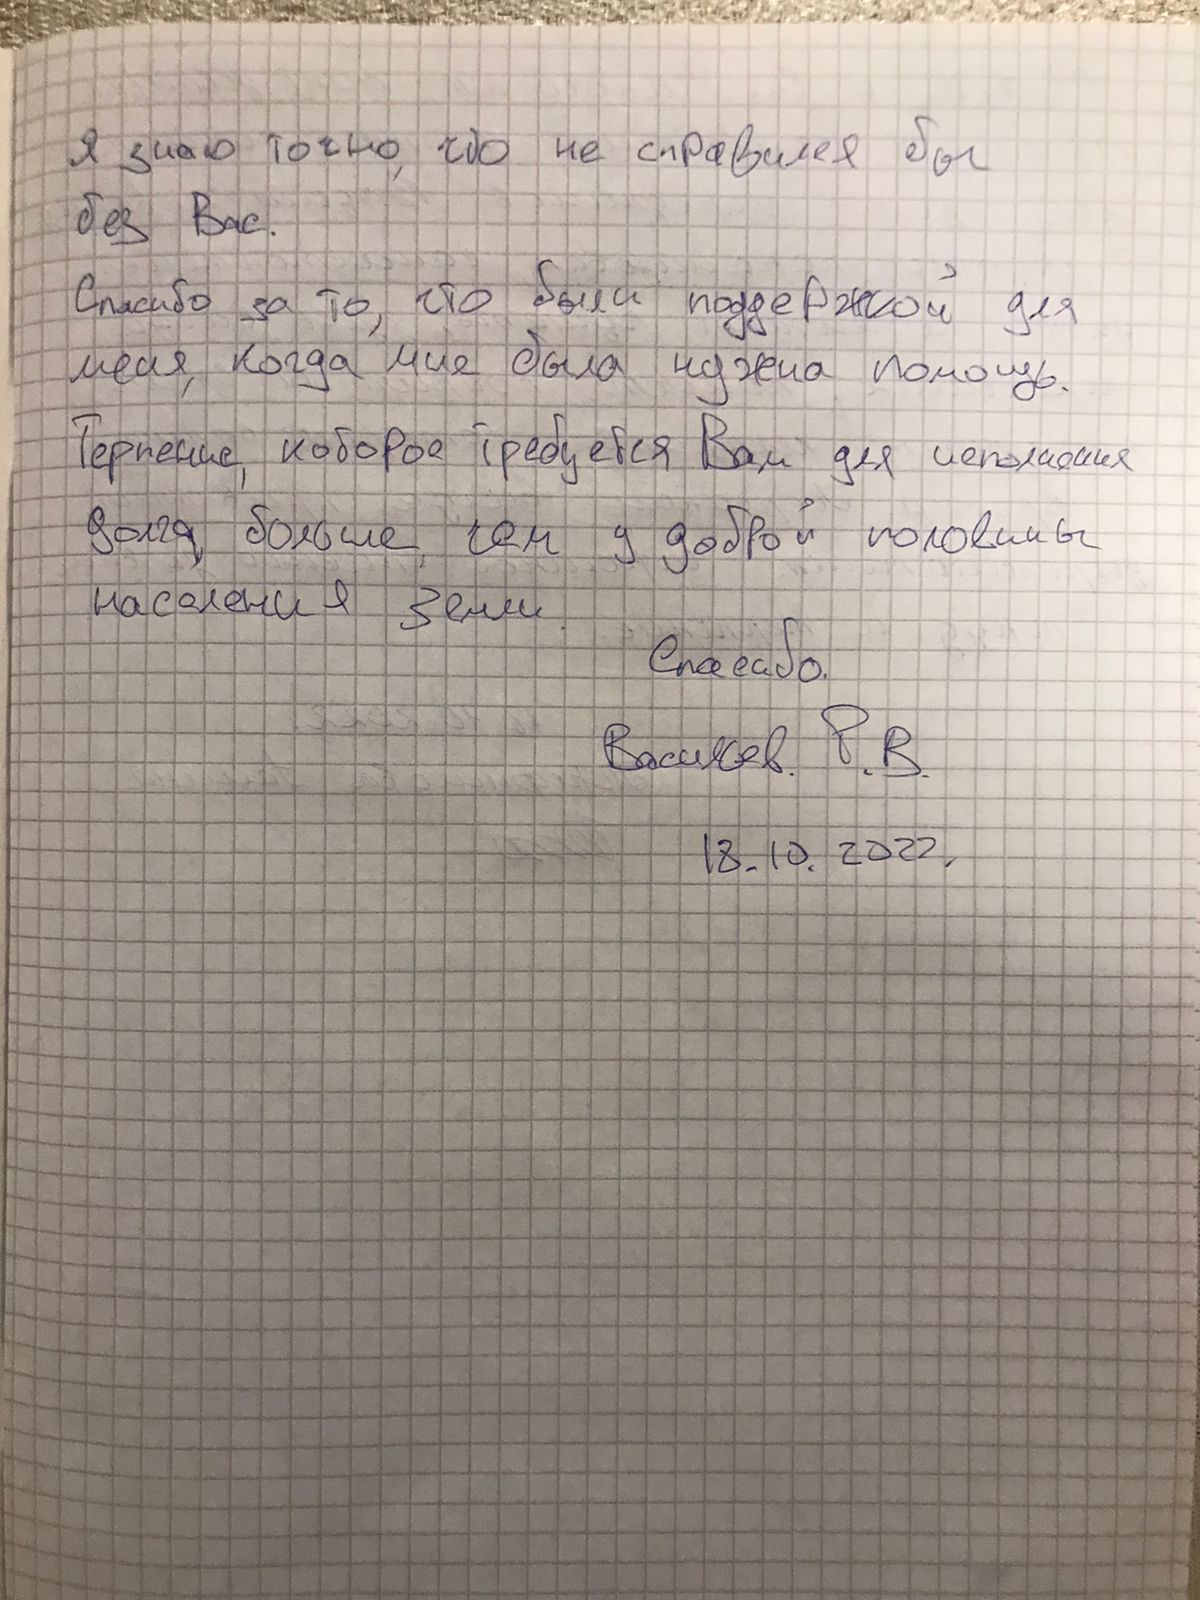 Я знаю точно, что не справился бы
без Вас.
Спасибо за то, что были поддержкой для
меня, когда мне была нужна помощь.
Терпение, которое требуется Вам для исполнения
долга, больше, чем у доброй половины
населения земли.
Спасибо.
Васильев. Р.В.
18.10.2022.